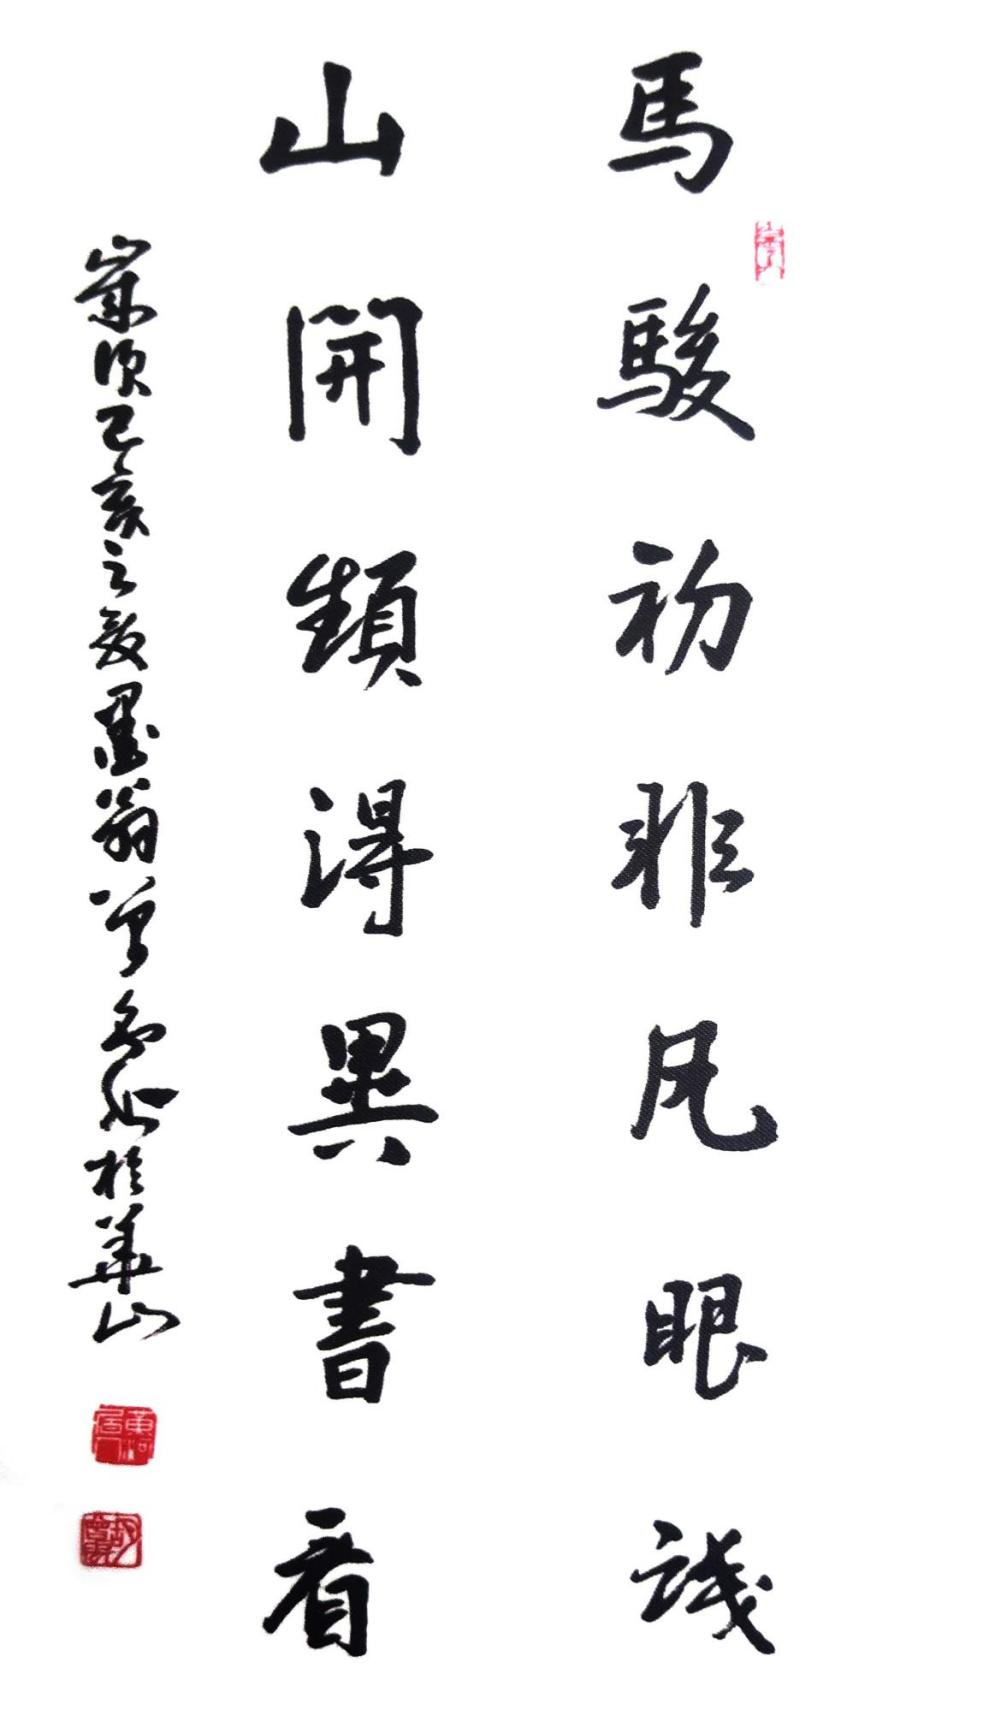 馬駿初非凡眼識
山開頻得異書看
歲次己亥之夏墨翁 於華山